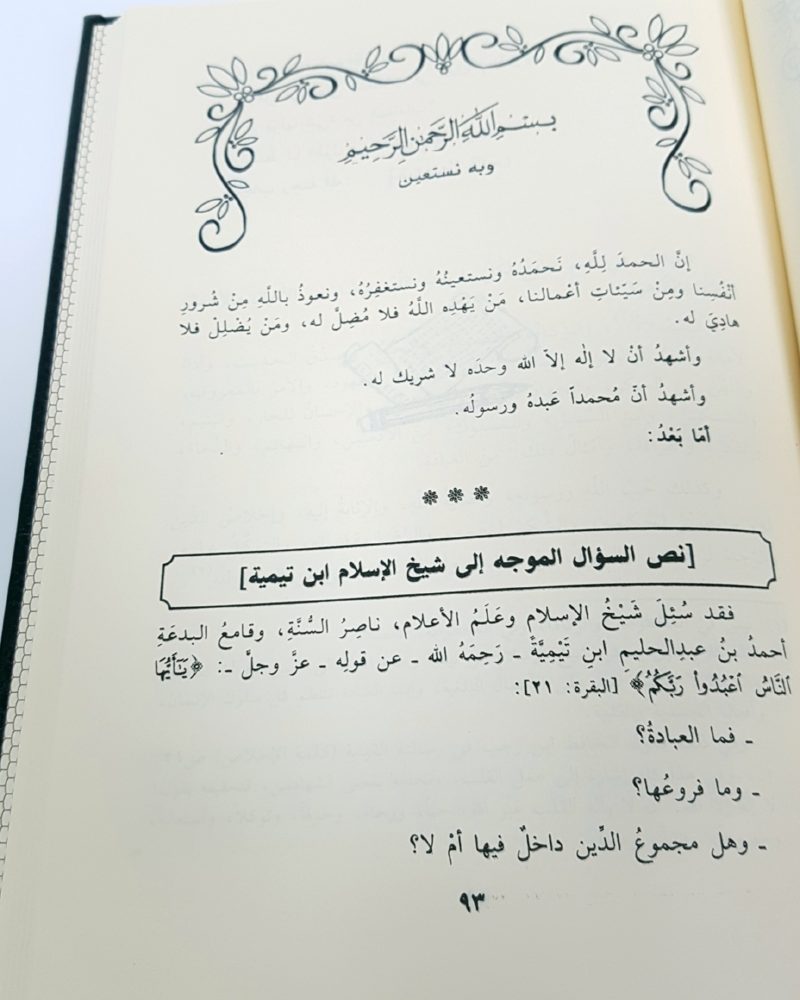 بسم الله الرحمن الرحيم
وبه نستعين
إنَّ الحمدَ لِلَّهِ، نَحمَدُهُ ونستعينُهُ ونستغفِرُهُ، ونعوذُ باللَّهِ مِنْ شُرورِ
أنْفُسِنا ومِنْ سَيِّئاتِ أعْمالنا، مَنْ يَهْدِه اللَّهُ فلا مُضِلَّ له، ومَنْ يُضْلِلْ فلا
هادِيَ له.
وأشهدُ أنْ لا إلٰه إلاّ الله وحدَه لا شريك له.
وأشهدُ أنّ مُحمداً عَبدهُ ورسولُه.
أمّا بَعْدُ:
[نص السؤال الموجه إلى شيخ الإسلام ابن تيمية]
فقد سُئِلَ شَيْخُ الإسلام وعَلَمُ الأعلام، ناصِرُ السُّنَّةِ، وقامعُ البدعَةِ
أحمدُ بنُ عبدِالحليمِ ابنِ تَيْمِيَّةَ ـ رَحِمَهُ الله ـ عن قولِه ـ عزَّ وجلَّ ـ: ﴿يَٰٓأَيُّهَا
ٱلنَّاسُ ٱعْبُدُوا۟ رَبَّكُمُ﴾ [البقرة: ٢١]:
ـ فما العبادةُ؟
ـ وما فروعُها؟
ـ وهل مجموعُ الدِّين داخلٌ فيها أمْ لا؟
٩٣